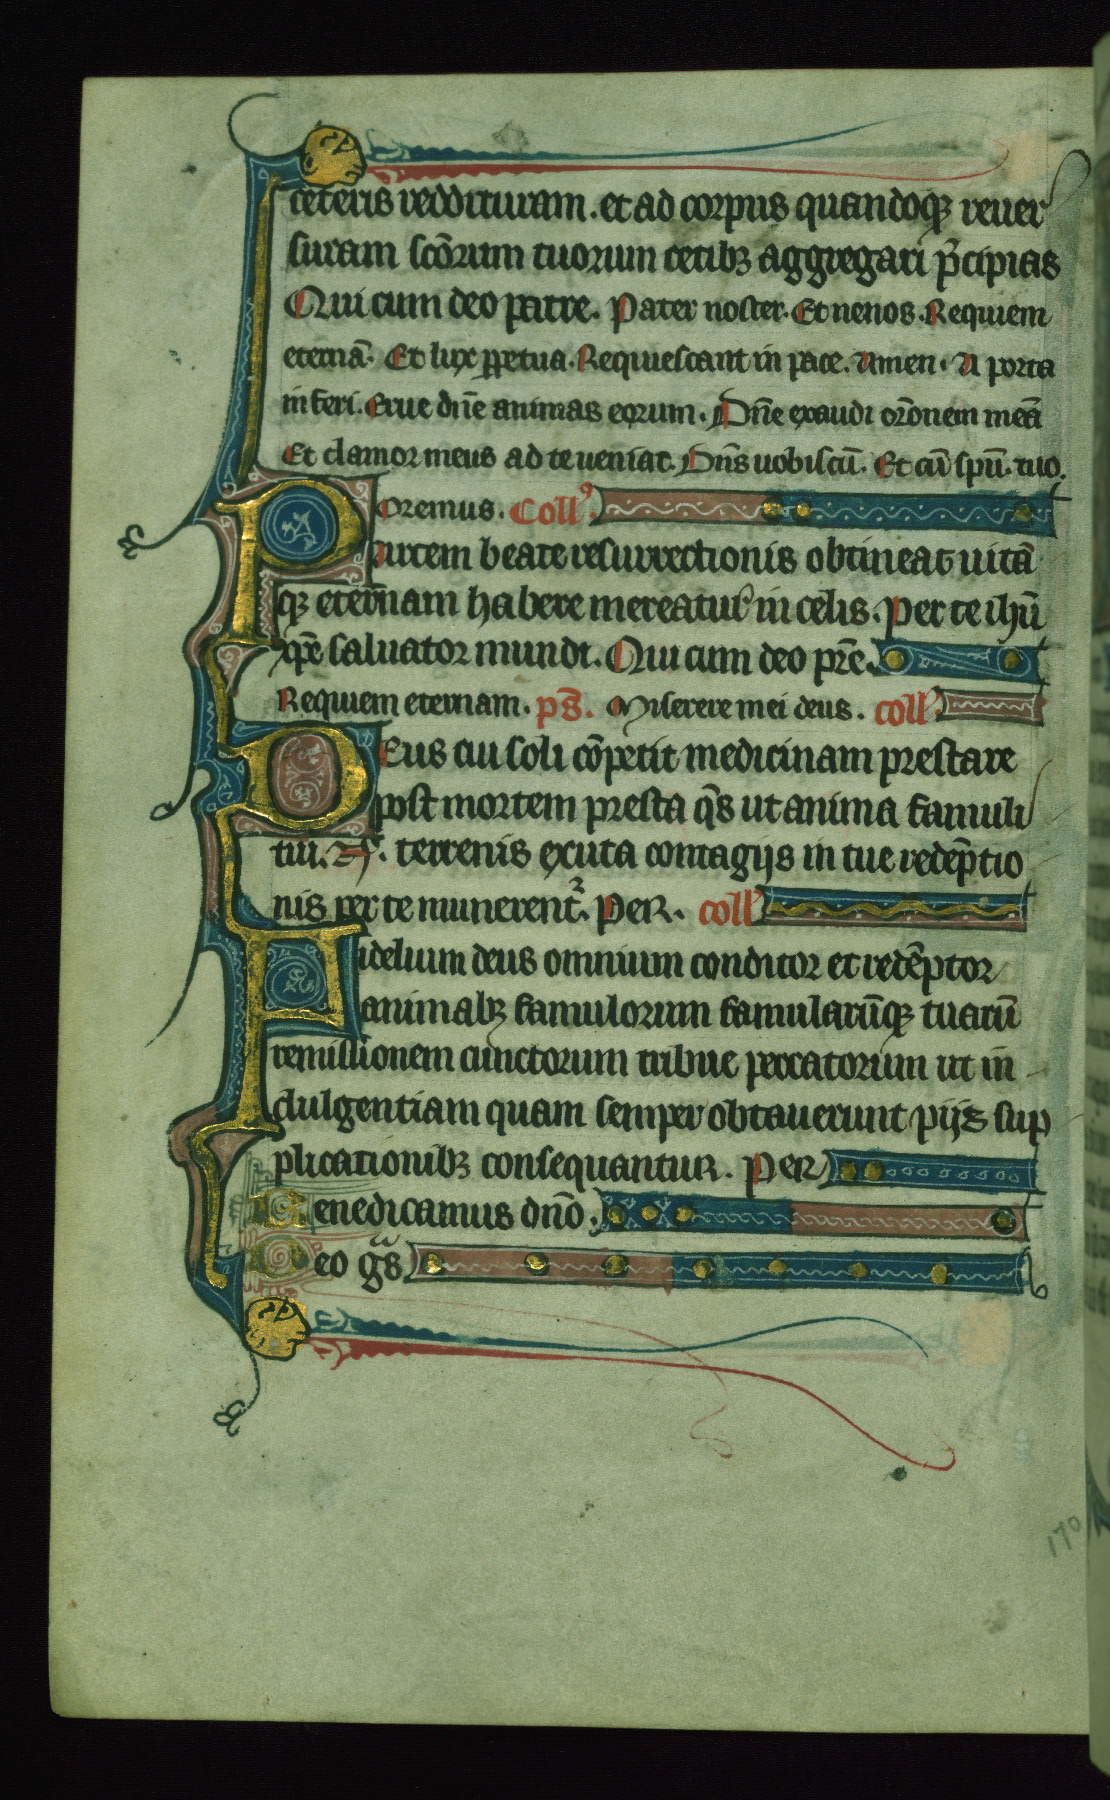 ceteris reddituram. et ad corpus quandoqꝫ reuer
suram scōrum tuorum cetibꝫ aggregari p̄cipias
Qui cum deo patre. Pater noster. Et nenos. Requiem
eternā. Et lux ꝑpetua. Requiescant in pace. Amen. A porta
inferi. Erue dn̄e animas eorum. Dn̄e exaudi or̄onem meā
Et clamor meus ad te ueniat. Dn̄s uobiscū. Et cū sp̄u. tuo.
Oremus. Collꝰ
Partem beate resurrectionis obtineat uitā
qꝫ eternam habere mereatur in celis. Per te ihū
xp̄e saluator mundi. Qui cum deo pr̄e.
Requiem eternam. ps̄. Miserere mei deus. coll'
Deus cui soli cōpetit medicinam prestare
post mortem presta q̄s ut anima famuli
tui. N. terrenis exuta contagijs in tue redēptio
nis parte munerent᷑. PeR. coll'
Fidelium deus omnium conditor et redēptor
animabꝫ famulorum famularūqꝫ tuarū
remissionem cunctorum tribue peccatorum ut in
dulgentiam quam semper obtauerunt pijs sup
plicationibꝫ consequantur. PeR
Benedicamus dn̄o.
Deo gᵃs
170